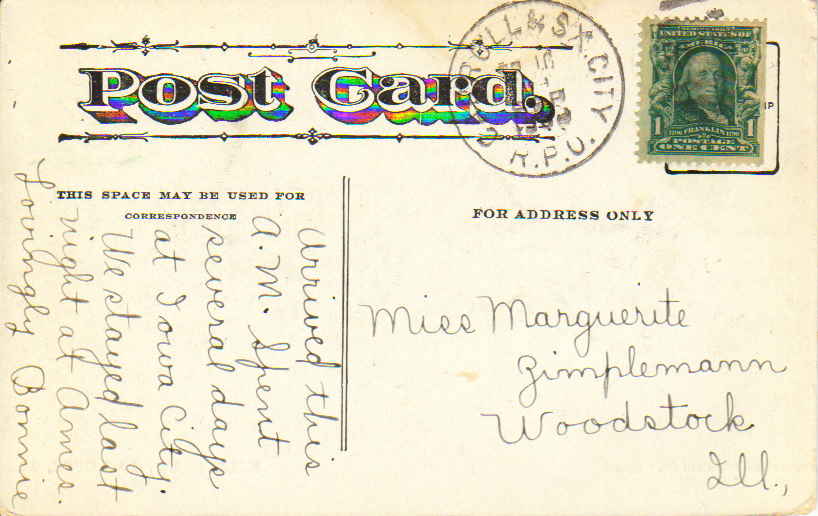 Post Card.
ROLL & SX. CITY
R.P.O.
UNITED STATES OF
AMERICA
1 FRANKLIN 1
POSTAGE
ONE CENT
THIS SPACE MAY BE USED FOR
CORRESPONDENCE
FOR ADDRESS ONLY
Arrived this
A.M. Spent
several days
at Iowa City.
We stayed last
night at Ames.
Lovingly Bonnie
Miss Marguerite
Zimplemann
Woodstock
Ill.,